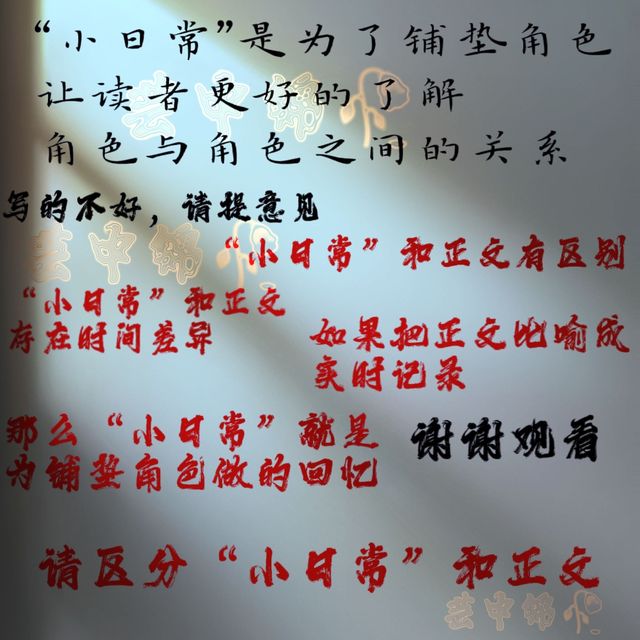 “小日常”是为了铺垫角色
让读者更好的了解
角色与角色之间的关系
写的不好，请提意见
“小日常”和正文有区别
“小日常”和正文
存在时间差异
如果把正文比喻成
实时记录
那么“小日常”就是
为铺垫角色做的回忆
谢谢观看
请区分“小日常”和正文